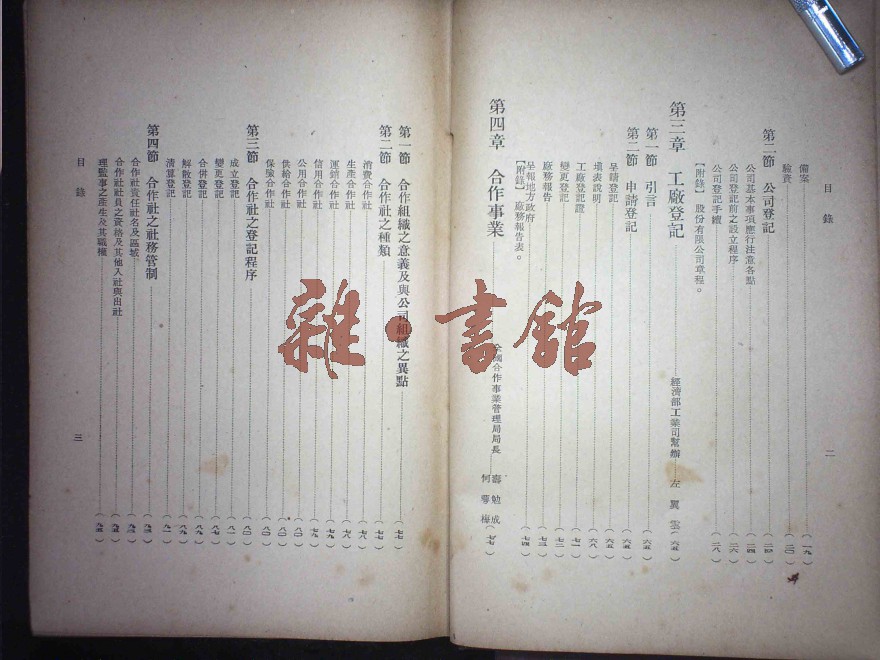 目錄
二
備案(一九)
驗資(二〇)
第二節 公司登記(二四)
公司基本事項應行注意各點(二四)
公司登記前之設立程序(二六)
公司登記手續(二八)
【附錄】 股份有限公司章程。
第三章 工廠登記 經濟部工業司幫辦 左翼(六五)
第一節 引言(六五)
第二節 申請登記(六五)
呈請登記(六五)
填表說明(六八)
工廠登記證(七一)
變更登記(七二)
廠務報告(七三)
呈報地方政府(七四)
【附錄】 廠務報告表。
第四章 合作事業 全國合作事業管理局局長 壽勉成 何(七七)
第一節 合作組織之意義及與公司組織之異點(七七)
第二節 合作社之種類(七七)
消費合作社(七八)
生產合作社(七八)
運銷合作社(七九)
信用合作社(七九)
公用合作社(八〇)
供給合作社(八〇)
保險合作社(八〇)
第三節 合作社之登記程序(八〇)
成立登記(八一)
變更登記(八七)
合併登記(八九)
解散登記(八九)
清算登記(九一)
第四節 合作社之社務管制(九三)
合作社責任社名及區域(九三)
合作社社員之資格及其他入社與出社(九五)
理監事之產生及其職權(九五)
目錄
三
雜·書館